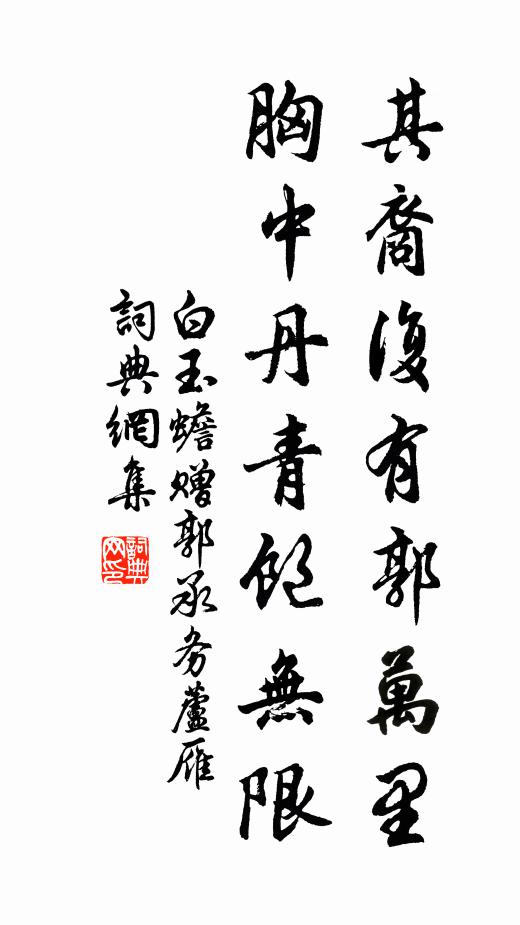 其裔復有郭萬里
胸中丹青飽無限
白玉蟾赠郭承务蘆雁
詞典網集
詞典网印